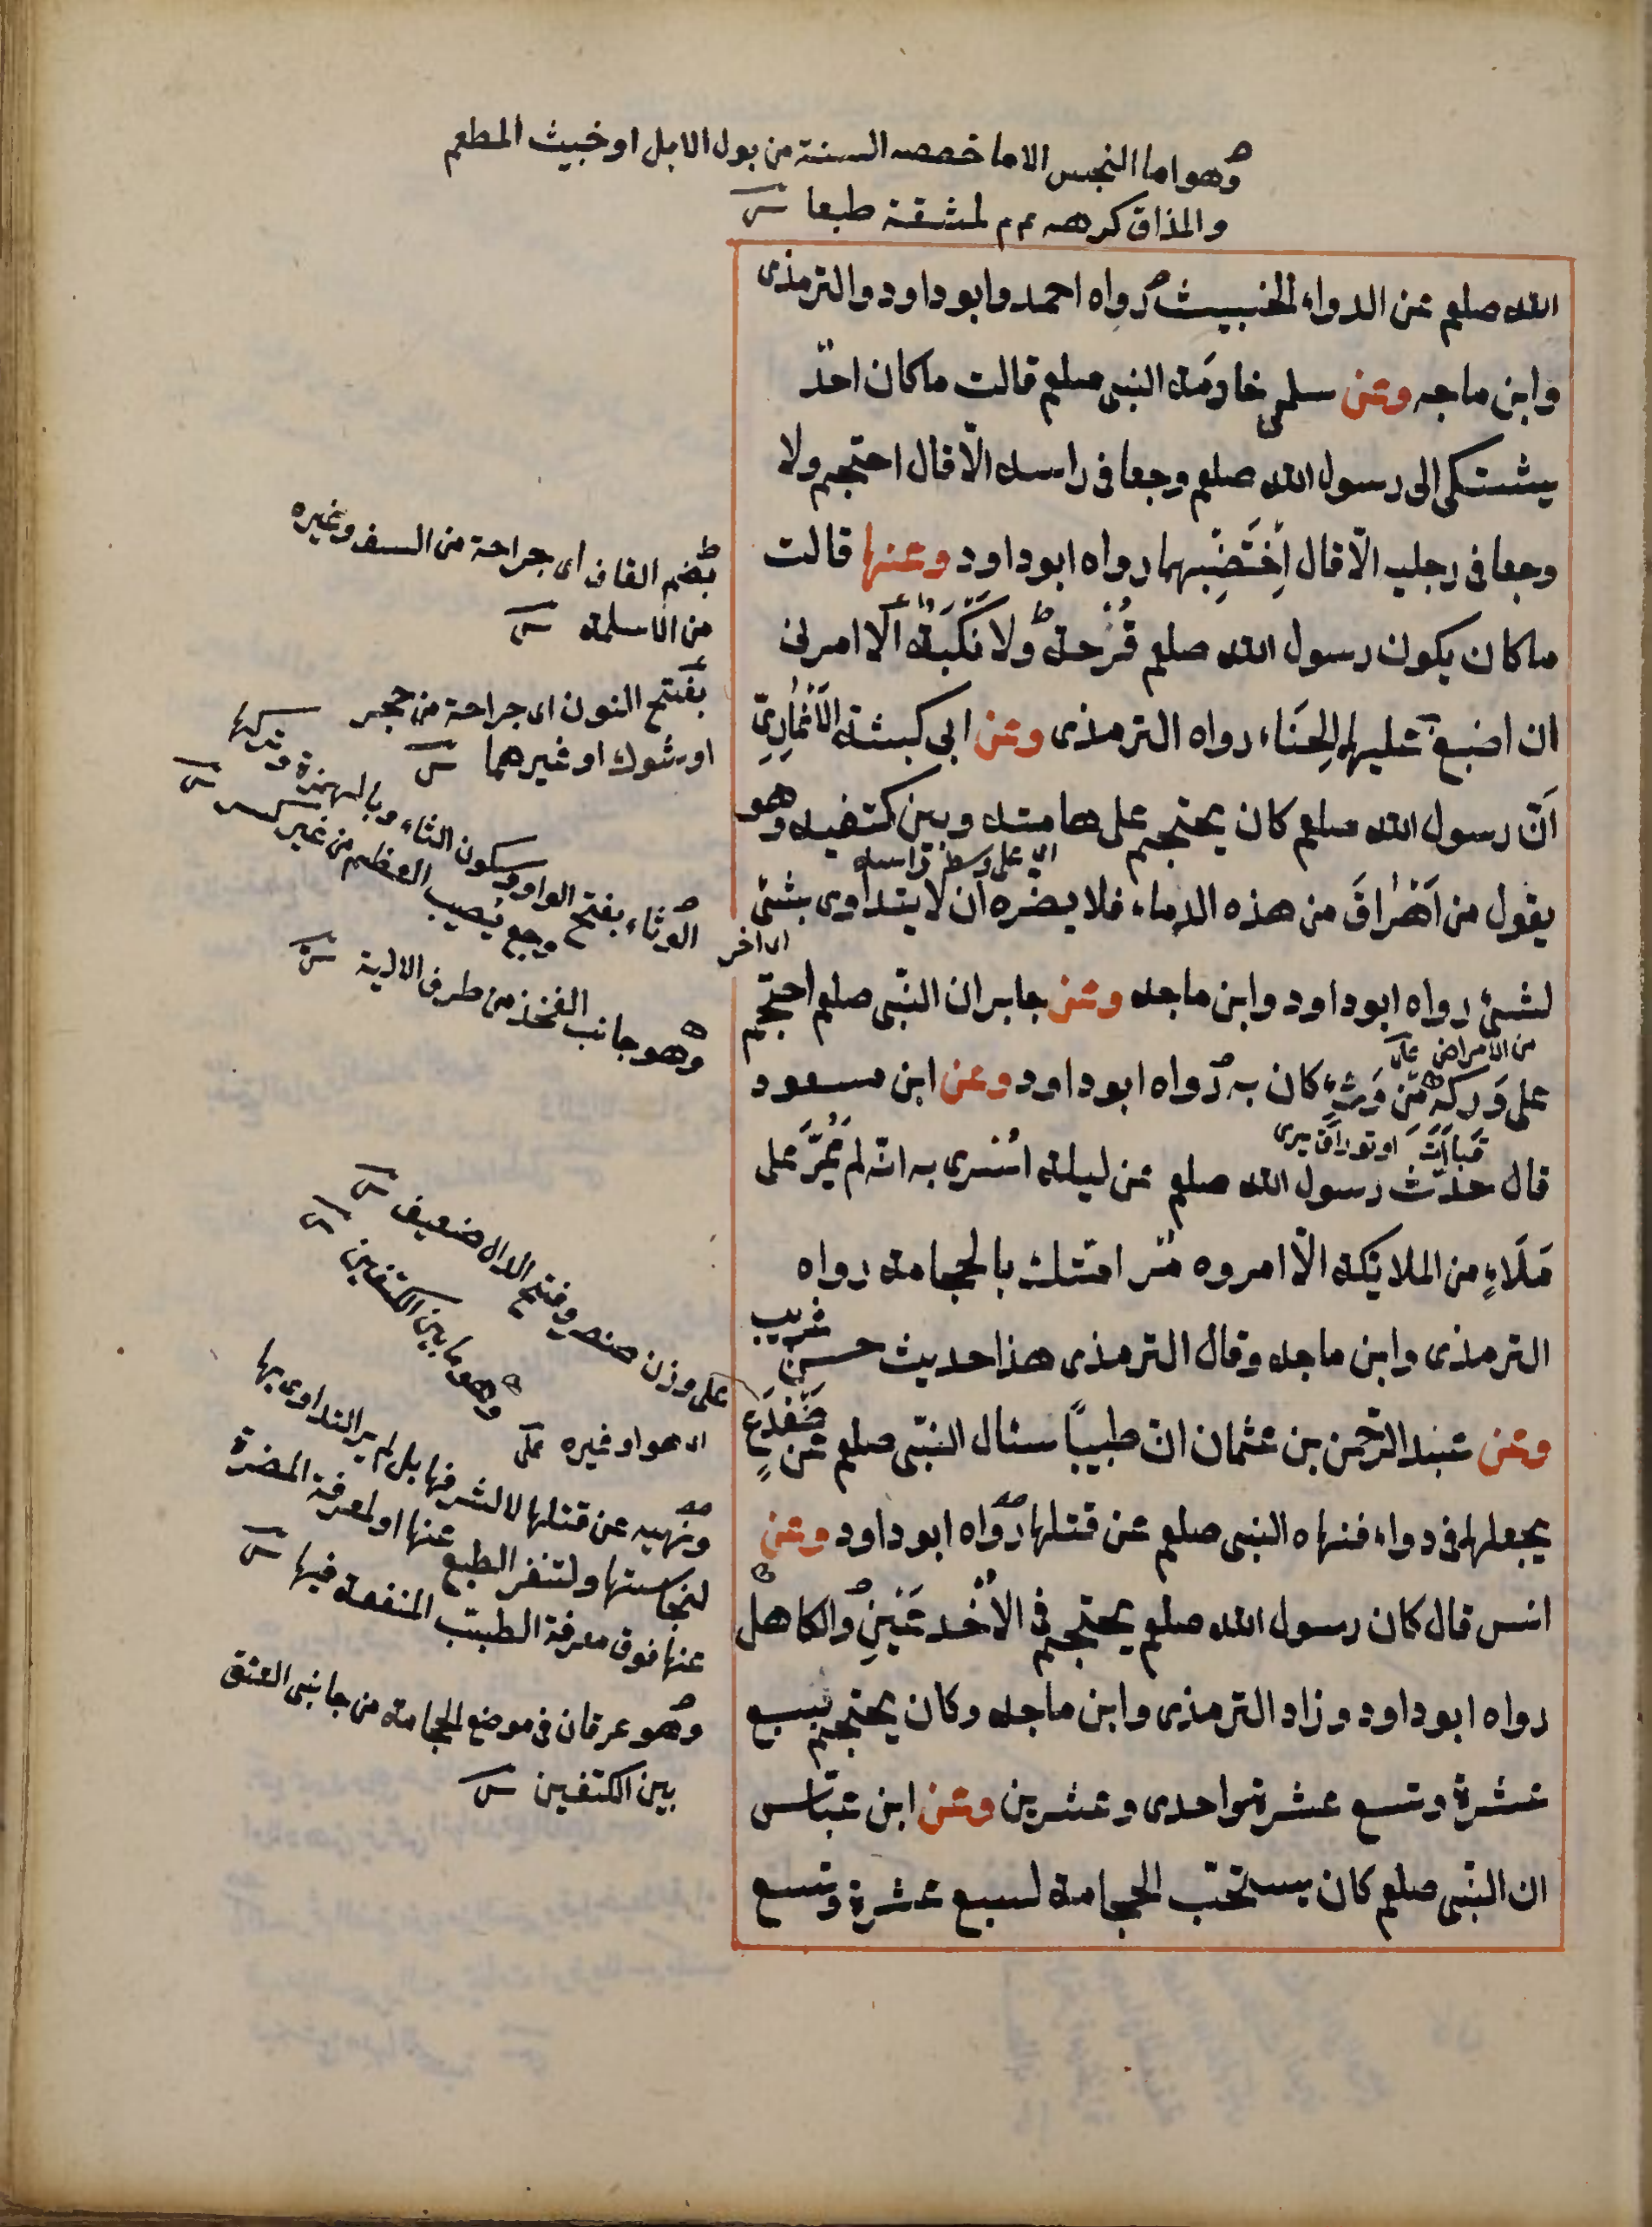 وهو اما النجس الا ما خصصه السنة من بول الابل او خبيث المطعم
والمذاق كرهه م م لمشقة طبعا
الله صلعم عن الدواء الخبيث رواه احمد وابو داود والترمذى
وابن ماجه وعن سلمى خادمة النبى صلعم قالت ما كان احدٌ
يشتكى الى رسول الله صلعم وجعا فى راسه الّا قال احتجم ولا
وجعا فى رجليه الّا قال اِخْتَضِبهما رواه ابو داود وعنها قالت
ما كان يكون رسول الله صلعم قُرْحة ولا نَكْبَة الّا امرنى
ان اضع عليها الحِنّاء رواه الترمذى وعن ابى كبشة الأَنْمارِىّ
اَنّ رسول الله صلعم كان يحتجم على هامته وبين كتفيه وهو
اى على وسط راسه
يقول من اَهْرَاقَ من هذه الدماء فلا يضره ان لا يتداوى بشئ
اى اخر
لشئ رواه ابو داود وابن ماجه وعن جابر ان النبّى صلعم احتجم
من الامراض
على وَركه مّن وَثْءٍ كان به رواه ابو داود وعن ابن مسعود
قال حدّث رسول الله صلعم عن ليلة اُسْرى به انّه لم يَمُرّ على
مَلَاءٍ من الملائكة الّا امروه مُر امّتك بالحجامة رواه
الترمذى وابن ماجه وقال الترمذى هذا حديث حسن غريب
وعن عبد الرّحمن بن عثمان انّ طبيبًا سئال النبّى صلعم عن ضفدع
يجعلها فى دواء فنهاه النبى صلعم عن قتلها رواه ابو داود وعن
انس قال كان رسول الله صلعم يحتجم فى الاَخْدَعَيْنِ والكاهل
رواه ابو داود وزاد الترمذى وابن ماجه وكان يحتجم لسبع
عشرة وتسع عشرة واحدى وعشرين وعن ابن عبّاس
ان النبّى صلعم كان يستحبّ الحجامة لسبع عشرة وتسع
بضم القاف اى جراحة من السيف وغيره
من الاسلحة
بفتح النون اى جراحة من حجر
او شوك او غيرهما
الوثاء بفتح الواو وسكون الثاء وبالهمزة وتركها
وجع يصيب العظم من غير كسر
وهو جانب الفخذ من طرف الالية
على وزن وفتح الدال ضعيف
وهو ما بين الكتفين
اى هو او غيره
ونهيه عن قتلها لا لشرفها بل لم ير التداوى بها
لنجاستها ولتنفر الطبع عنها او لمعرفة المضرة
عنها فوق معرفة الطبيب المنفعة فيها
وهو عرقان فى موضع الحجامة من جانبى العنق
بين الكتفين